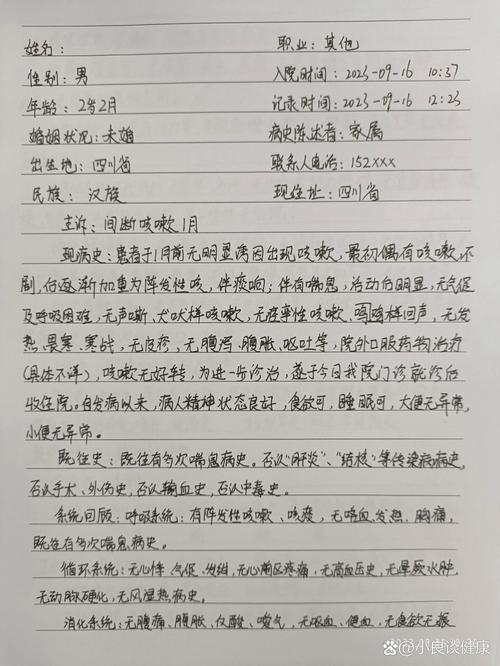 姓名： 职业：其他
性别：男 入院时间：2023-09-16 10:37
年龄：2岁2月 记录时间：2023-09-16 12:23
婚姻状况：未婚 病史陈述者：家属
出生地：四川省 联系人电话：152xxx
民族：汉族 现住址：四川省
主诉：间断咳嗽1月
现病史：患者于1月前无明显诱因出现咳嗽，最初偶有咳嗽，不
剧，后逐渐加重为阵发性咳，伴痰响；伴有喘息，活动后明显，无气促
及呼吸困难，无声嘶、犬吠样咳嗽，无痉挛性咳嗽、鸡鸣样回声，无发
热、畏寒、寒战，无皮疹，无腹泻、腹胀、呕吐等，院外口服药物治疗
（具体不详），咳嗽无好转，为进一步诊治，遂于今日我院门诊就诊后
收住院。自发病以来，病人精神状态良好，食欲可，睡眠可，大便无异常，
小便无异常。
既往史：既往有多次喘息病史。否认“肝炎”、“结核”等传染病病史，
否认手术、外伤史，否认输血史，否认中毒史。
系统回顾：呼吸系统：有阵发性咳嗽、咳痰，无咯血、发热、胸痛，
既往有多次喘息病史。
循环系统：无心悸、气促、发绀，无心前区疼痛，无高血压史，无晕厥、水肿，
无动脉硬化，无风湿热病史。
消化系统：无腹痛、腹胀、反酸、嗳气，无呕血、便血，无食欲无振
@小良谈健康